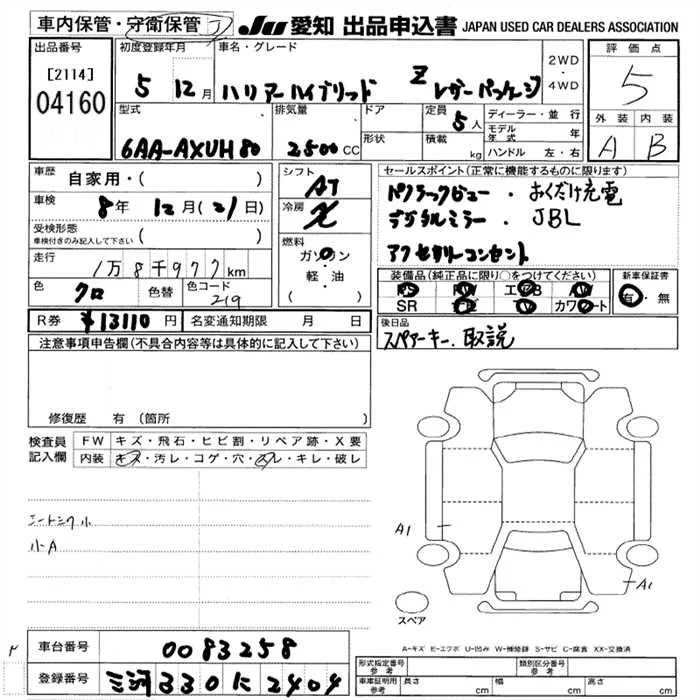 車内保管・守衛保管 J
JU 愛知 出品申込書 JAPAN USED CAR DEALERS ASSOCIATION
出品番号
[2114]
04160
初度登録年月
5 12月
車名・グレード
ハリアーハイブリッド Z レザーパッケージ
2WD
・
4WD
評価点
5
外装 内装
A B
型式
6AA-AXUH80
排気量
2500CC
ドア
形状
定員 5人
積載 kg
ディーラー・並行
モデル年式 年
ハンドル 左・右
車歴 自家用・( )
車検 8年 12月(21日)
受検形態
車検付きのみ記入して下さい ( )
走行 1万8千977km
色 クロ 色替 色コード 219
シフト AT
冷房
燃料
ガソリン
軽・油
( )
セールスポイント(正常に機能するものに限ります)
パノラマビュー・おくだけ充電
デジタルミラー・JBL
アクセサリーコンセント
装備品(純正品に限り○をつけてください)
PS PW エアB AW
SR ナビ TV カワシート
新車保証書
有・無
R券 ¥13110円 名変通知期限 月 日
後日品
スペアーキー、取説
注意事項申告欄(不具合内容等は具体的に記入して下さい)
修復歴 有(箇所 )
検査員記入欄
FW キズ・飛石・ヒビ割・リペア跡・X要
内装 キズ・汚レ・コゲ・穴・スレ・キレ・破レ
シートシワ小
小A
A1
A1
スペア
A-キズ E-エクボ U-凹み W-補修跡 S-サビ C-腐食 XX-交換済
車台番号 0083258
登録番号 三河 330 に 2404
形式指定番号 参考
類別区分番号 参考
車庫証明用 参考 長さ cm 幅 cm 高さ cm